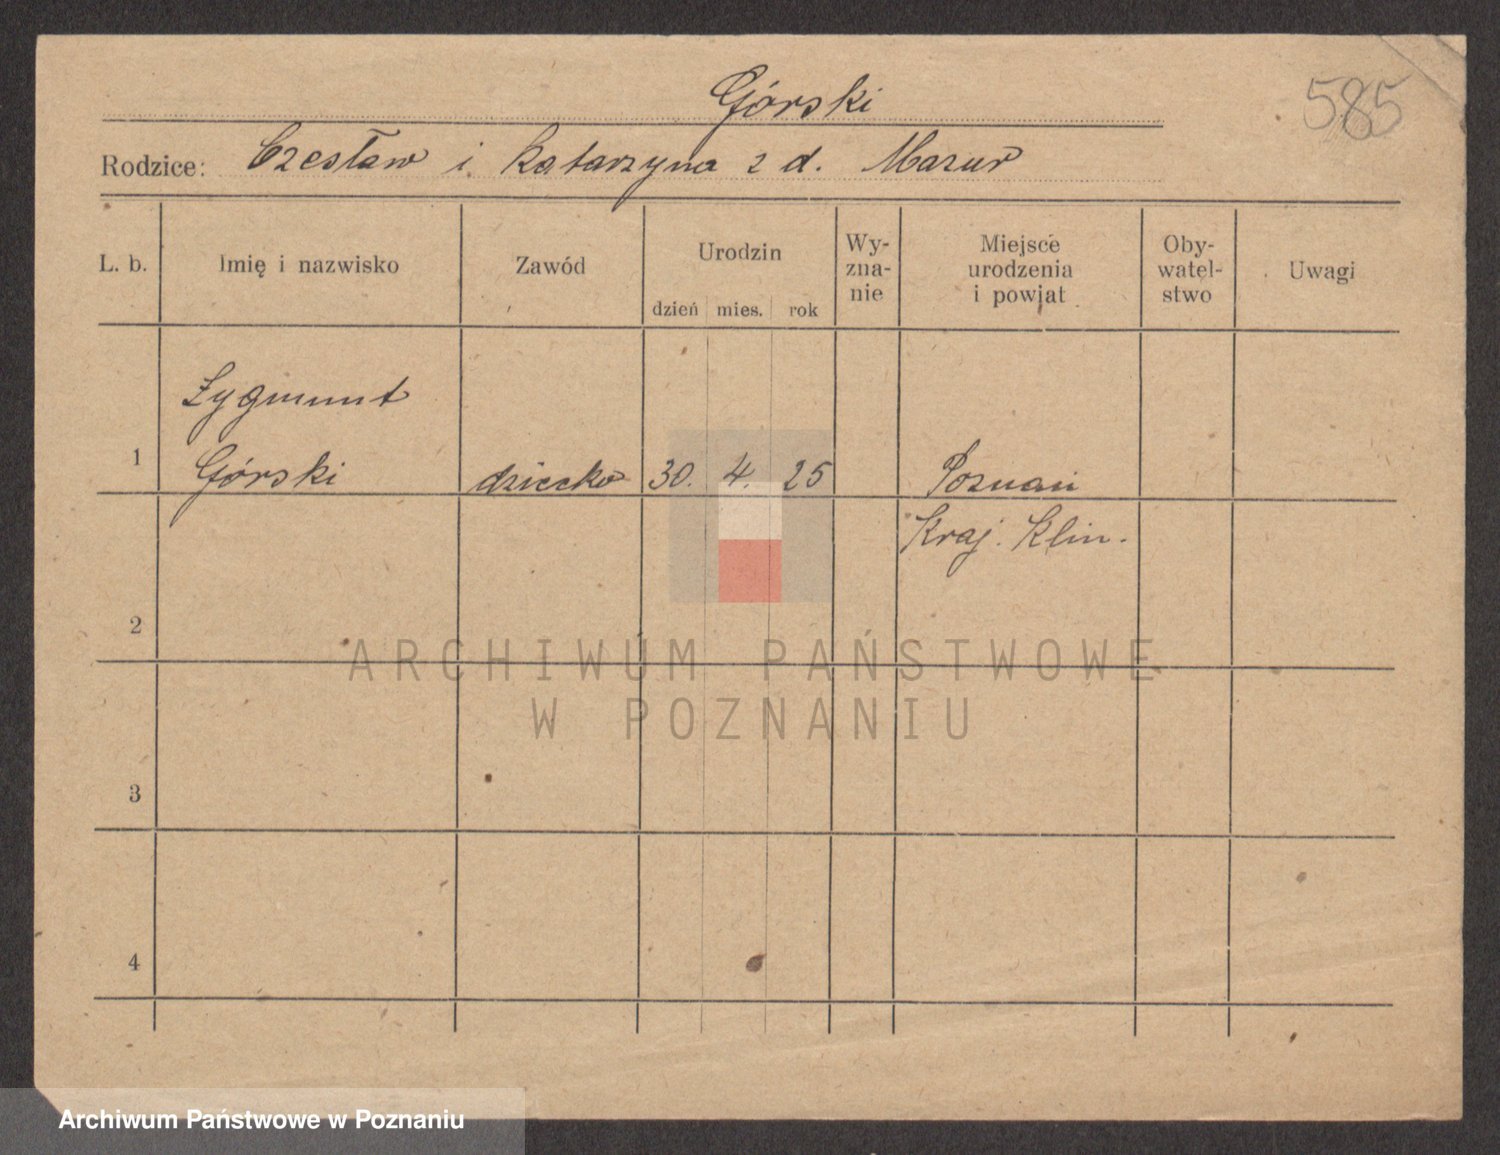 Górski
585
Rodzice: Czesław i Katarzyna z d. Mazur
L. b.
Imię i nazwisko
Zawód
Urodzin
dzień mies. rok
Wy-
zna-
nie
Miejsce
urodzenia
i powiat
Oby-
watel-
stwo
Uwagi
Zygmunt
1 Górski dziecko 30. 4. 25 Poznań
Kraj. Klin.
2
ARCHIWUM PAŃSTWOWE
W POZNANIU
3
4
Archiwum Państwowe w Poznaniu